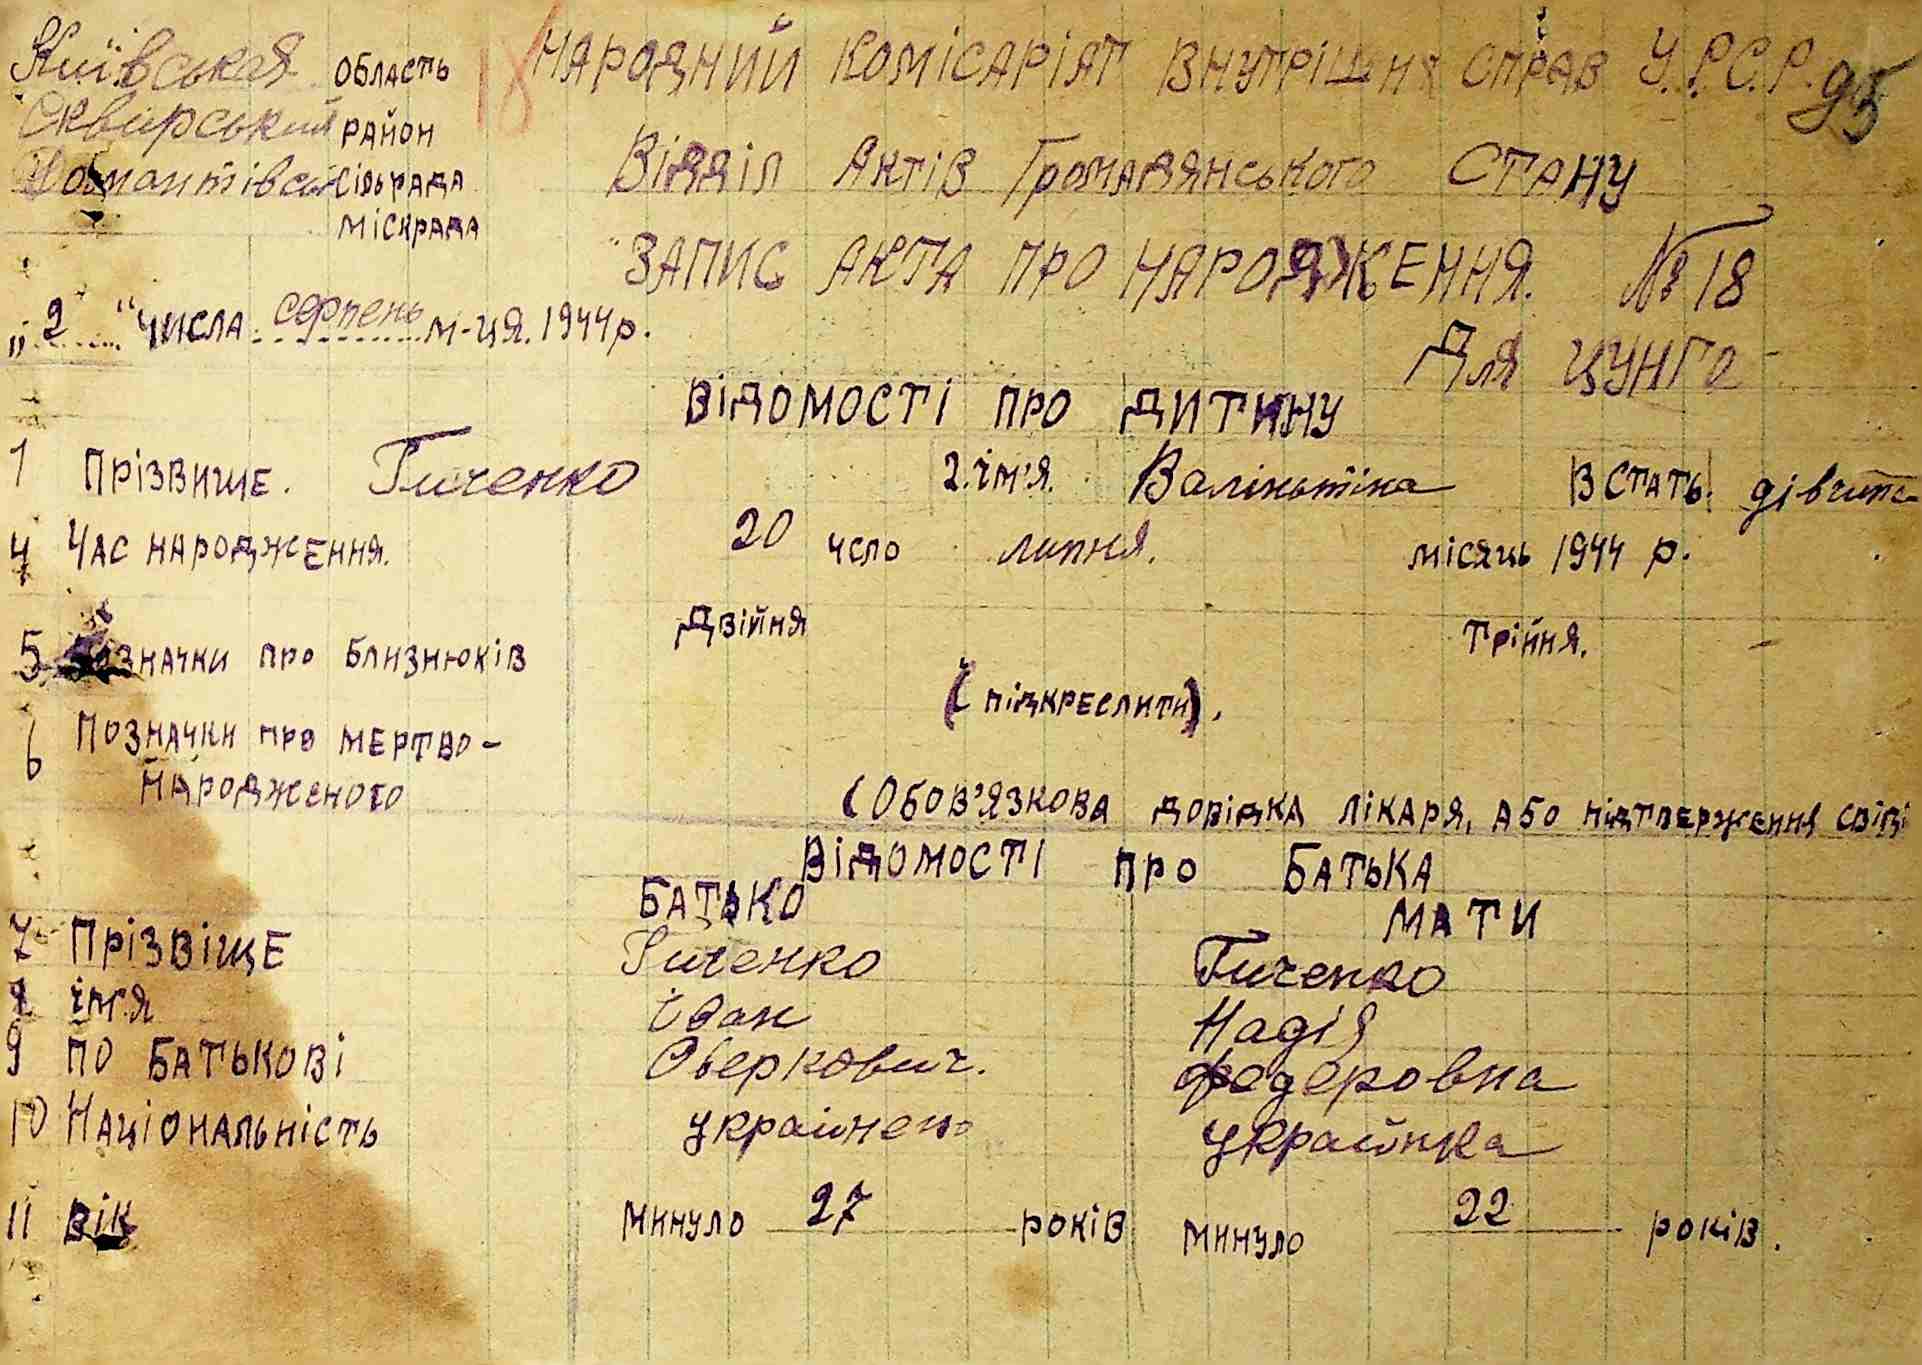 Київська область 18 НАРОДНИЙ КОМІСАРІЯТ ВНУТРІШНІХ СПРАВ У.Р.С.Р. 95
Сквирський район
Домантівська сільрада Відділ Актів Громадянського Стану
міскрада
ЗАПИС АКТА ПРО НАРОДЖЕННЯ. № 18
"2" числа серпень м-ця. 1944 р.
Для ЦУНГО
ВІДОМОСТІ ПРО ДИТИНУ
1 Прізвише. Гиченко 2. ім'я. Валіньтіна 3 Стать. дівчина
4 Час народження. 20 чсло липня. місяць 1944 р.
5 Позначки про близнюків Двійня Трійня. -
(підкреслити).
6 Позначки про мертво-
народженого
(Обов'язкова довідка лікаря, або підтверження свідк
ВІДОМОСТІ ПРО БАТЬКА
БАТЬКО МАТИ
7 Прізвіще Гиченко Гиченко
8 ім'я Іван Надія
9 по батькові Оверкович. Федеровна
10 Національність українець українка
11 вік минуло 27 років минуло 22 років.